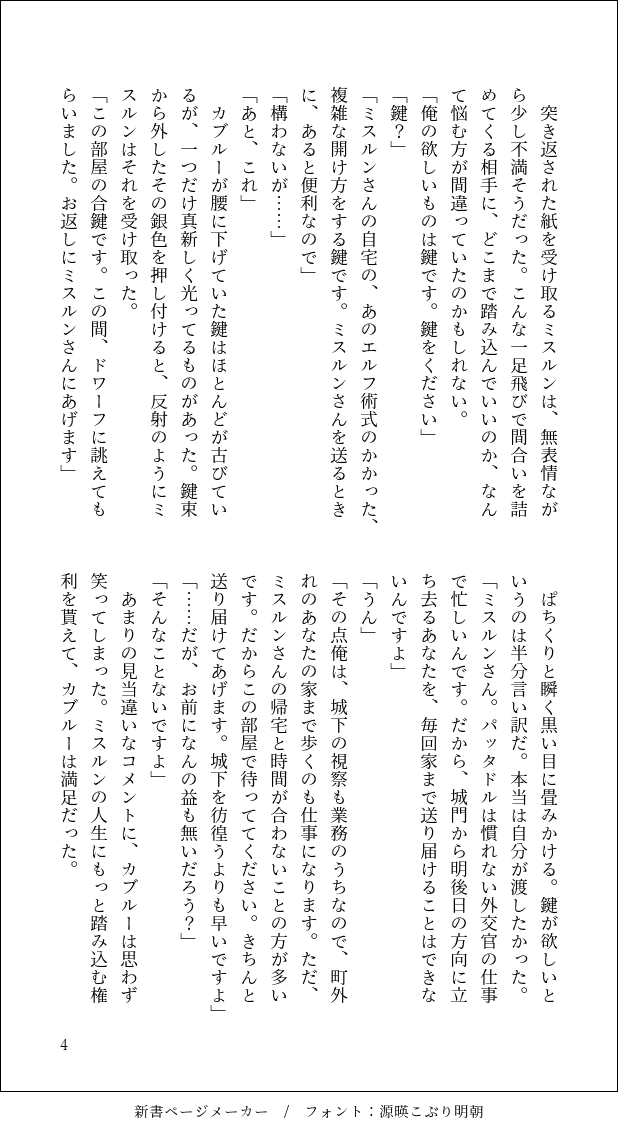 突き返された紙を受け取るミスルンは、無表情なが
ら少し不満そうだった。こんな一足飛びで間合いを詰
めてくる相手に、どこまで踏み込んでいいのか、なん
て悩む方が間違っていたのかもしれない。
「俺の欲しいものは鍵です。鍵をください」
「鍵？」
「ミスルンさんの自宅の、あのエルフ術式のかかった、
複雑な開け方をする鍵です。ミスルンさんを送るとき
に、あると便利なので」
「構わないが……」
「あと、これ」
　カブルーが腰に下げていた鍵はほとんどが古びてい
るが、一つだけ真新しく光ってるものがあった。鍵束
から外したその銀色を押し付けると、反射のようにミ
スルンはそれを受け取った。
「この部屋の合鍵です。この間、ドワーフに誂えても
らいました。お返しにミスルンさんにあげます」
　ぱちくりと瞬く黒い目に畳みかける。鍵が欲しいと
いうのは半分言い訳だ。本当は自分が渡したかった。
「ミスルンさん。パッタドルは慣れない外交官の仕事
で忙しいんです。だから、城門から明後日の方向に立
ち去るあなたを、毎回家まで送り届けることはできな
いんですよ」
「うん」
「その点俺は、城下の視察も業務のうちなので、町外
れのあなたの家まで歩くのも仕事になります。ただ、
ミスルンさんの帰宅と時間が合わないことの方が多い
です。だからこの部屋で待っててください。きちんと
送り届けてあげます。城下を彷徨うよりも早いですよ」
「……だが、お前になんの益も無いだろう？」
「そんなことないですよ」
　あまりの見当違いなコメントに、カブルーは思わず
笑ってしまった。ミスルンの人生にもっと踏み込む権
利を貰えて、カブルーは満足だった。
4
新書ページメーカー　/　フォント：源暎こぶり明朝